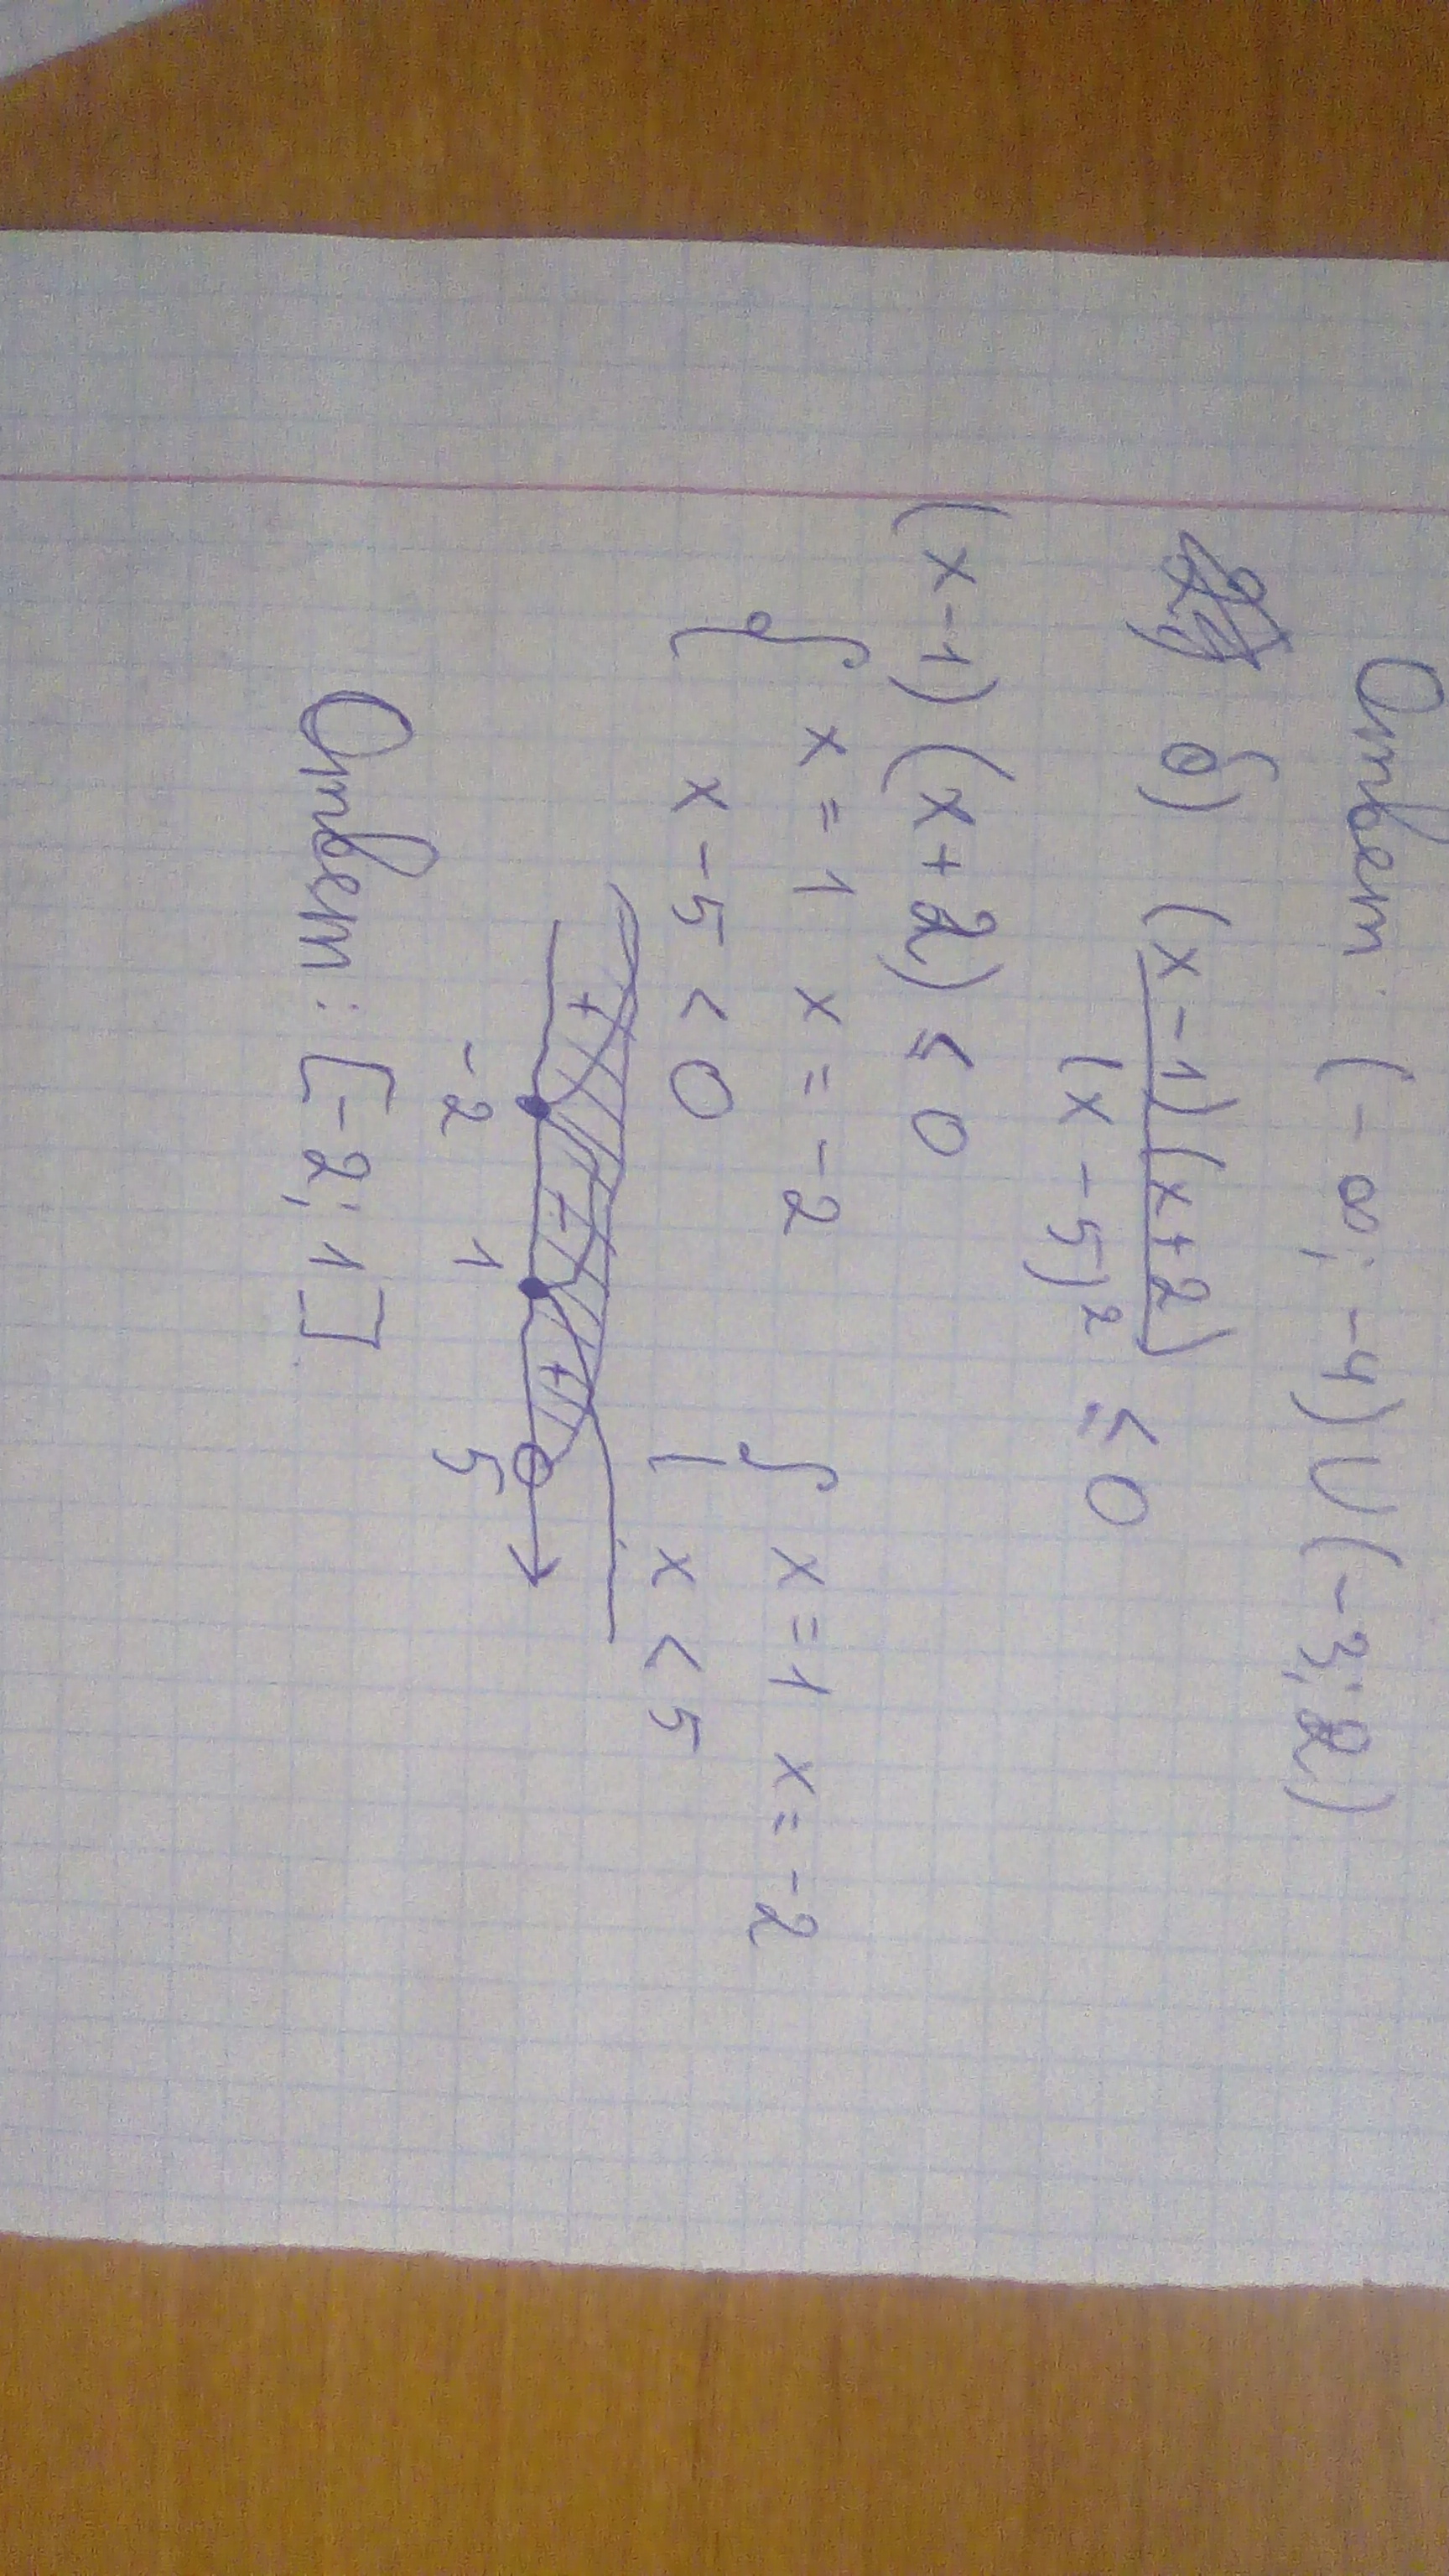 Ответ: (-∞; -4) U (-3; 2)
б) (x-1)(x+2)
(x-5)² ≤ 0
(x-1)(x+2) ≤ 0
{ x=1 x=-2 { x=1 x=-2
x-5<0 x<5
+ - +
-2 1 5
Ответ: [-2; 1]